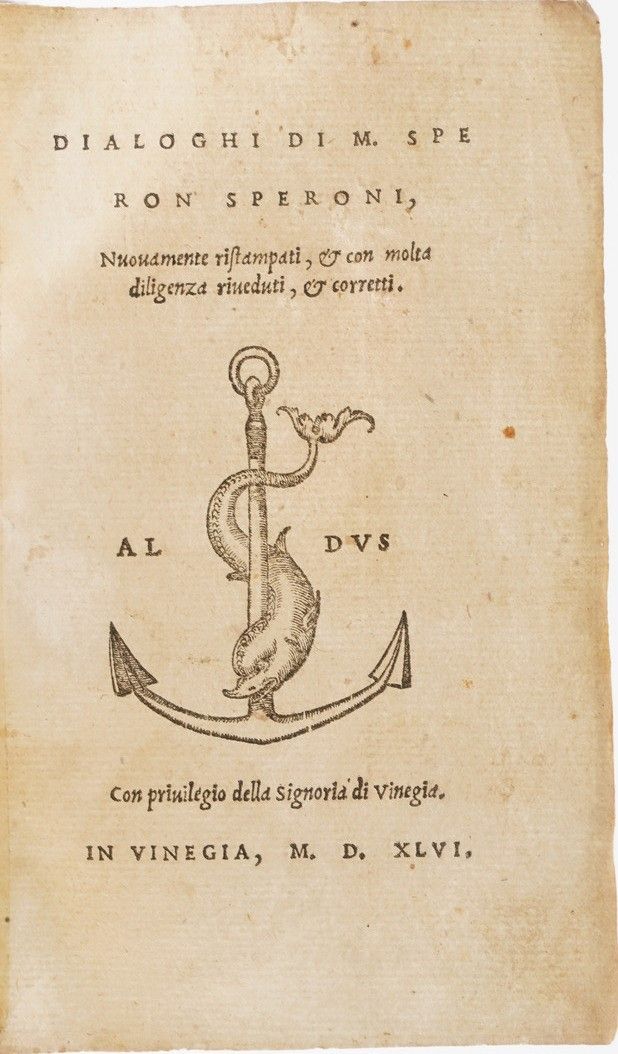 DIALOGHI DI M. SPE
RON SPERONI,
Nuouamente ristampati, & con molta
diligenza riueduti, & corretti.
AL DVS
Con priuilegio della Signoria di Vinegia.
IN VINEGIA, M. D. XLVI.